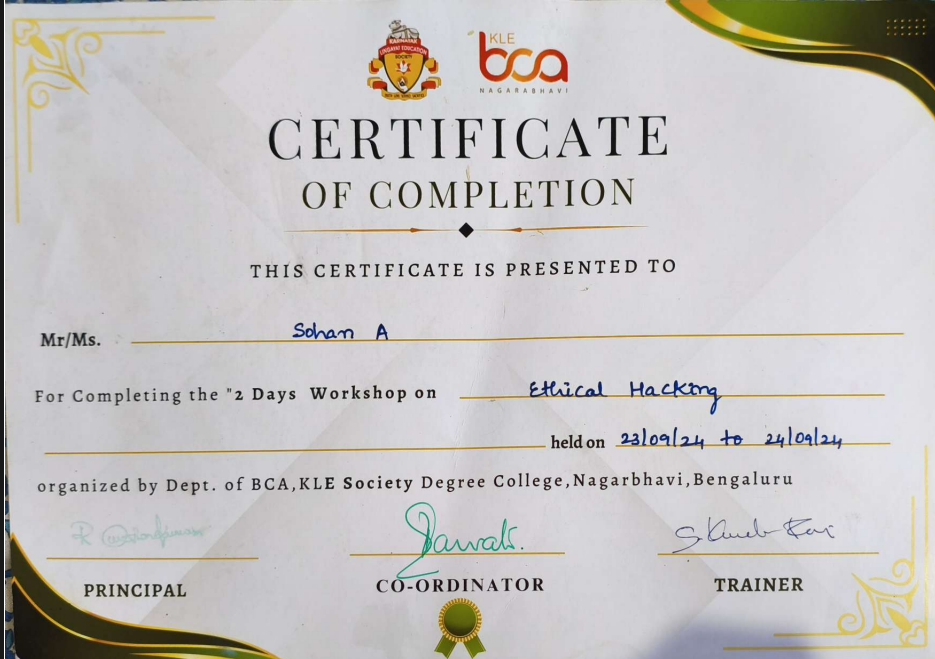 KARNATAK
LINGAYAT EDUCATION
SOCIETY
KLE
bca
NAGARABHAVI
CERTIFICATE
OF COMPLETION
THIS CERTIFICATE IS PRESENTED TO
Mr/Ms. Sohan A
For Completing the "2 Days Workshop on Ethical Hacking
held on 23/09/24 to 24/09/24
organized by Dept. of BCA,KLE Society Degree College,Nagarbhavi,Bengaluru
PRINCIPAL CO-ORDINATOR TRAINER